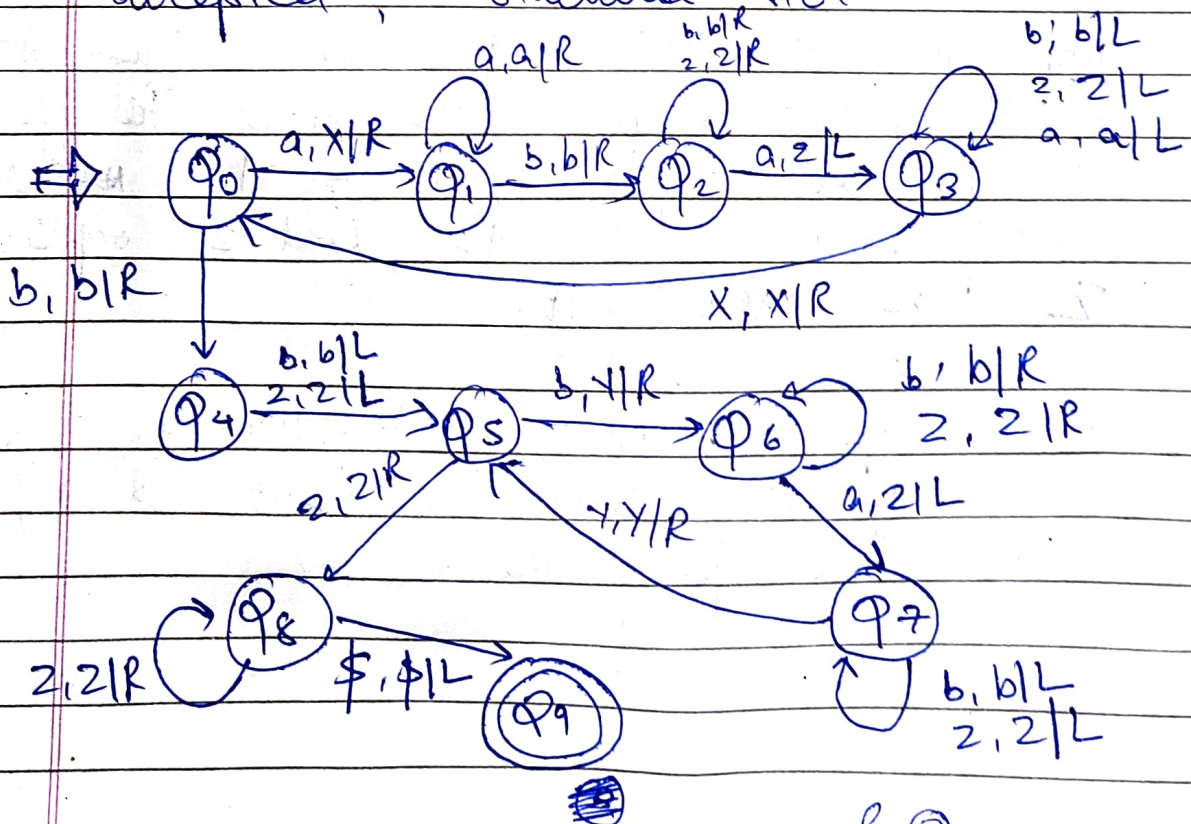 a,a|R
b,b|R
2,2|R
b, b|L
2, 2|L
a, a|L
q0
a,X|R
q1
b,b|R
q2
a,2|L
q3
b, b|R
X, X|R
q4
b, b|L
2, 2|L
q5
b,Y|R
q6
b, b|R
2, 2|R
2,2|R
Y,Y|R
a,2|L
q8
q7
2,2|R
$,$|L
q9
b, b|L
2, 2|L